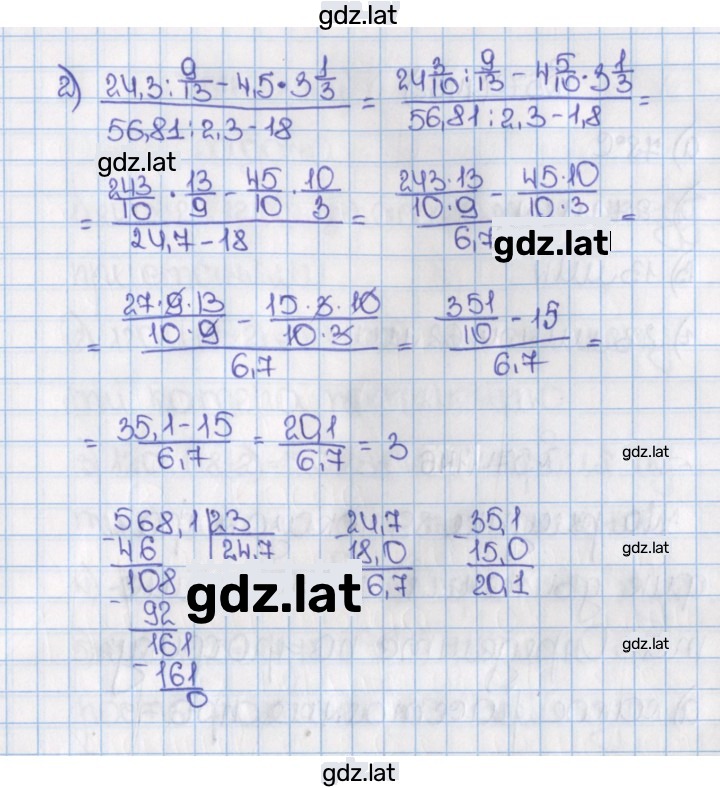 gdz.lat
2) (24,3 : 9/13 − 4,5 · 3 1/3) / (56,81 : 2,3 − 18) = (24 3/10 : 9/13 − 4 5/10 · 3 1/3) / (56,81 : 2,3 − 1,8) =
gdz.lat
= (243/10 · 13/9 − 45/10 · 10/3) / (24,7 − 18) = ((243·13)/(10·9) − (45·10)/(10·3)) / 6,7 =
gdz.lat
= ((27·9·13)/(10·9) − (15·3·10)/(10·3)) / 6,7 = (351/10 − 15) / 6,7 =
= (35,1 − 15) / 6,7 = 20,1 / 6,7 = 3
gdz.lat
568,1 | 23
−46 | 24,7
108
−92
161
−161
0
−24,7
18,0
6,7
−35,1
15,0
20,1
gdz.lat
gdz.lat
gdz.lat
gdz.lat